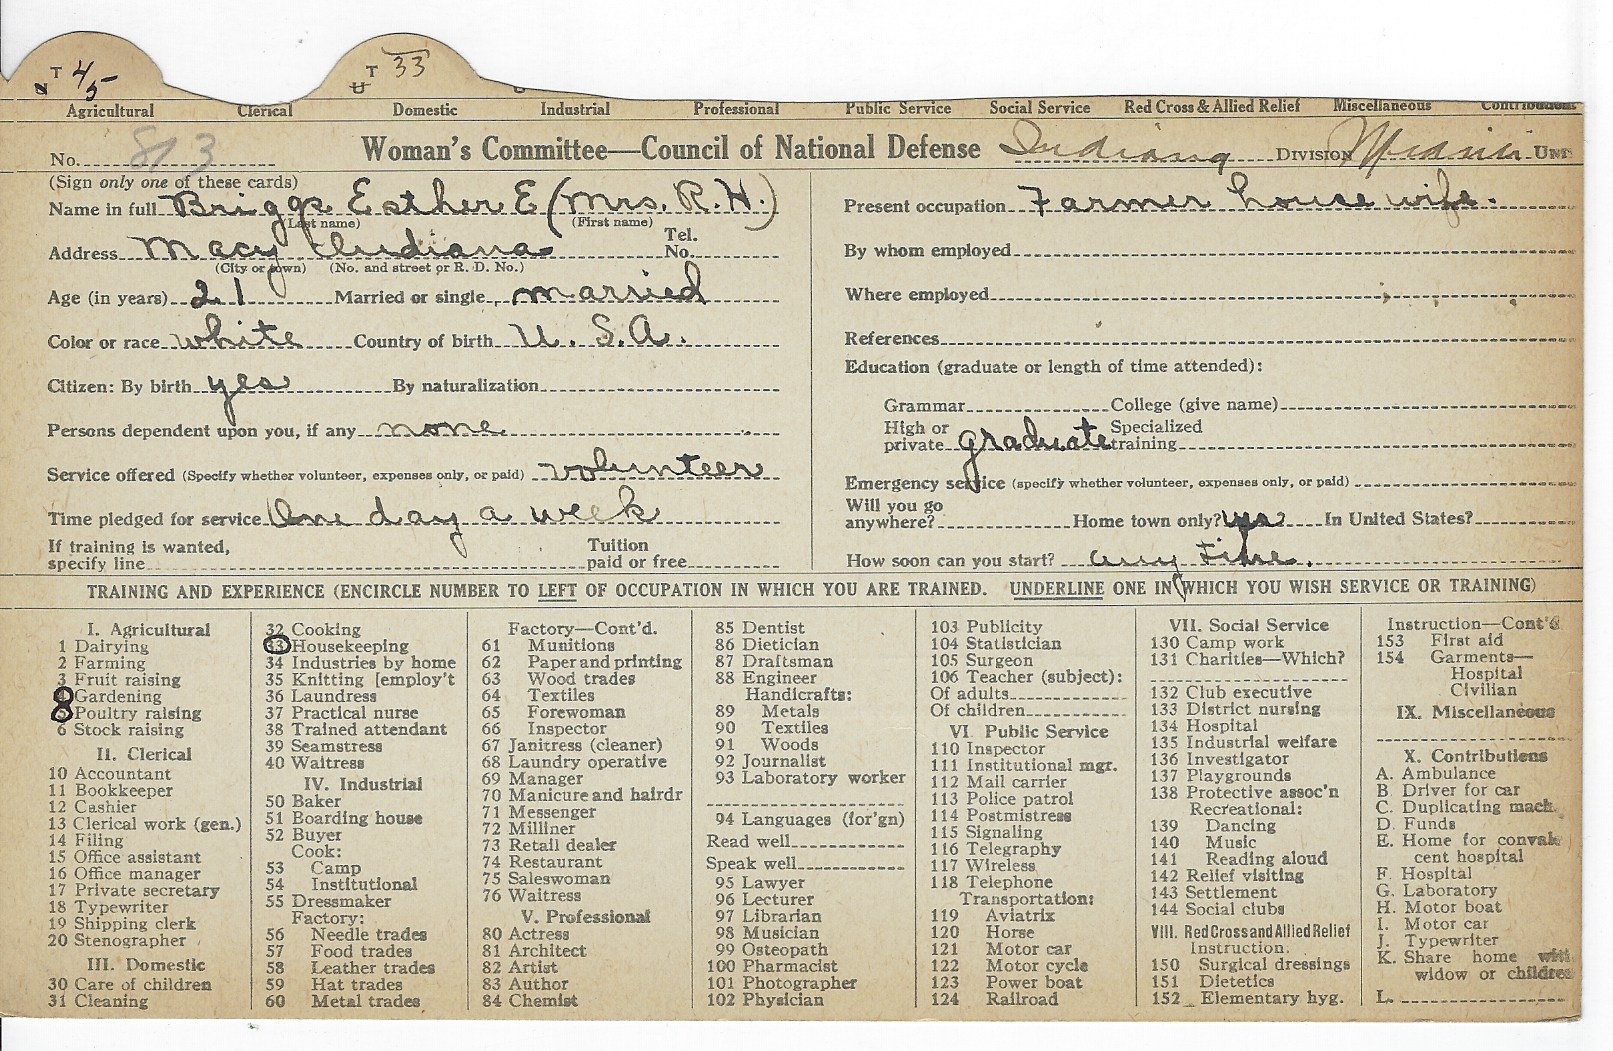 T 4/5 T 33
U
Agricultural Clerical Domestic Industrial Professional Public Service Social Service Red Cross & Allied Relief Miscellaneous Contributions
No. 813 Woman's Committee—Council of National Defense Indiana DIVISION Miami UNIT
(Sign only one of these cards)
Name in full Briggs Esther E (Mrs. R. H.)
(Last name) (First name)
Address Macy Indiana Tel. No.
(City or town) (No. and street or R. D. No.)
Age (in years) 21 Married or single married
Color or race white Country of birth U. S. A.
Citizen: By birth yes By naturalization
Persons dependent upon you, if any none
Service offered (Specify whether volunteer, expenses only, or paid) volunteer
Time pledged for service One day a week
If training is wanted, Tuition
specify line paid or free
Present occupation Farmer house wife.
By whom employed
Where employed
References
Education (graduate or length of time attended):
Grammar College (give name)
High or Specialized
private graduate training
Emergency service (specify whether volunteer, expenses only, or paid)
Will you go
anywhere? Home town only? yes In United States?
How soon can you start? any time.
TRAINING AND EXPERIENCE (ENCIRCLE NUMBER TO LEFT OF OCCUPATION IN WHICH YOU ARE TRAINED. UNDERLINE ONE IN WHICH YOU WISH SERVICE OR TRAINING)
I. Agricultural
1 Dairying
2 Farming
3 Fruit raising
4 Gardening
5 Poultry raising
6 Stock raising
II. Clerical
10 Accountant
11 Bookkeeper
12 Cashier
13 Clerical work (gen.)
14 Filing
15 Office assistant
16 Office manager
17 Private secretary
18 Typewriter
19 Shipping clerk
20 Stenographer
III. Domestic
30 Care of children
31 Cleaning
32 Cooking
33 Housekeeping
34 Industries by home
35 Knitting [employ't
36 Laundress
37 Practical nurse
38 Trained attendant
39 Seamstress
40 Waitress
IV. Industrial
50 Baker
51 Boarding house
52 Buyer
Cook:
53 Camp
54 Institutional
55 Dressmaker
Factory:
56 Needle trades
57 Food trades
58 Leather trades
59 Hat trades
60 Metal trades
Factory—Cont'd.
61 Munitions
62 Paper and printing
63 Wood trades
64 Textiles
65 Forewoman
66 Inspector
67 Janitress (cleaner)
68 Laundry operative
69 Manager
70 Manicure and hairdr
71 Messenger
72 Milliner
73 Retail dealer
74 Restaurant
75 Saleswoman
76 Waitress
V. Professional
80 Actress
81 Architect
82 Artist
83 Author
84 Chemist
85 Dentist
86 Dietician
87 Draftsman
88 Engineer
Handicrafts:
89 Metals
90 Textiles
91 Woods
92 Journalist
93 Laboratory worker
94 Languages (for'gn)
Read well
Speak well
95 Lawyer
96 Lecturer
97 Librarian
98 Musician
99 Osteopath
100 Pharmacist
101 Photographer
102 Physician
103 Publicity
104 Statistician
105 Surgeon
106 Teacher (subject):
Of adults
Of children
VI. Public Service
110 Inspector
111 Institutional mgr.
112 Mail carrier
113 Police patrol
114 Postmistress
115 Signaling
116 Telegraphy
117 Wireless
118 Telephone
Transportation:
119 Aviatrix
120 Horse
121 Motor car
122 Motor cycle
123 Power boat
124 Railroad
VII. Social Service
130 Camp work
131 Charities—Which?
132 Club executive
133 District nursing
134 Hospital
135 Industrial welfare
136 Investigator
137 Playgrounds
138 Protective assoc'n
Recreational:
139 Dancing
140 Music
141 Reading aloud
142 Relief visiting
143 Settlement
144 Social clubs
VIII. Red Cross and Allied Relief
Instruction.
150 Surgical dressings
151 Dietetics
152 Elementary hyg.
Instruction—Cont'd
153 First aid
154 Garments—
Hospital
Civilian
IX. Miscellaneous
X. Contributions
A. Ambulance
B Driver for car
C. Duplicating mach.
D. Funds
E. Home for convales
cent hospital
F. Hospital
G. Laboratory
H. Motor boat
I. Motor car
J. Typewriter
K. Share home with
widow or children
L.